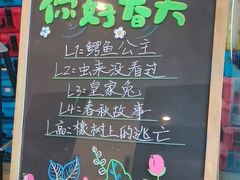 你好春天
L1：鳄鱼公主
L2：虫来没看过
L3：皇家兔
L4：春秋故事
L高：橡树上的逃亡